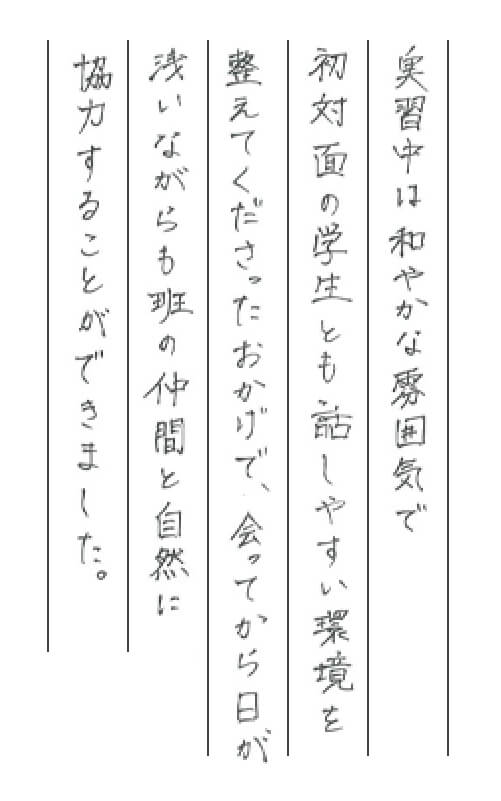 実習中は和やかな雰囲気で
初対面の学生とも話しやすい環境を
整えてくださったおかげで、会ってから日が
浅いながらも班の仲間と自然に
協力することができました。